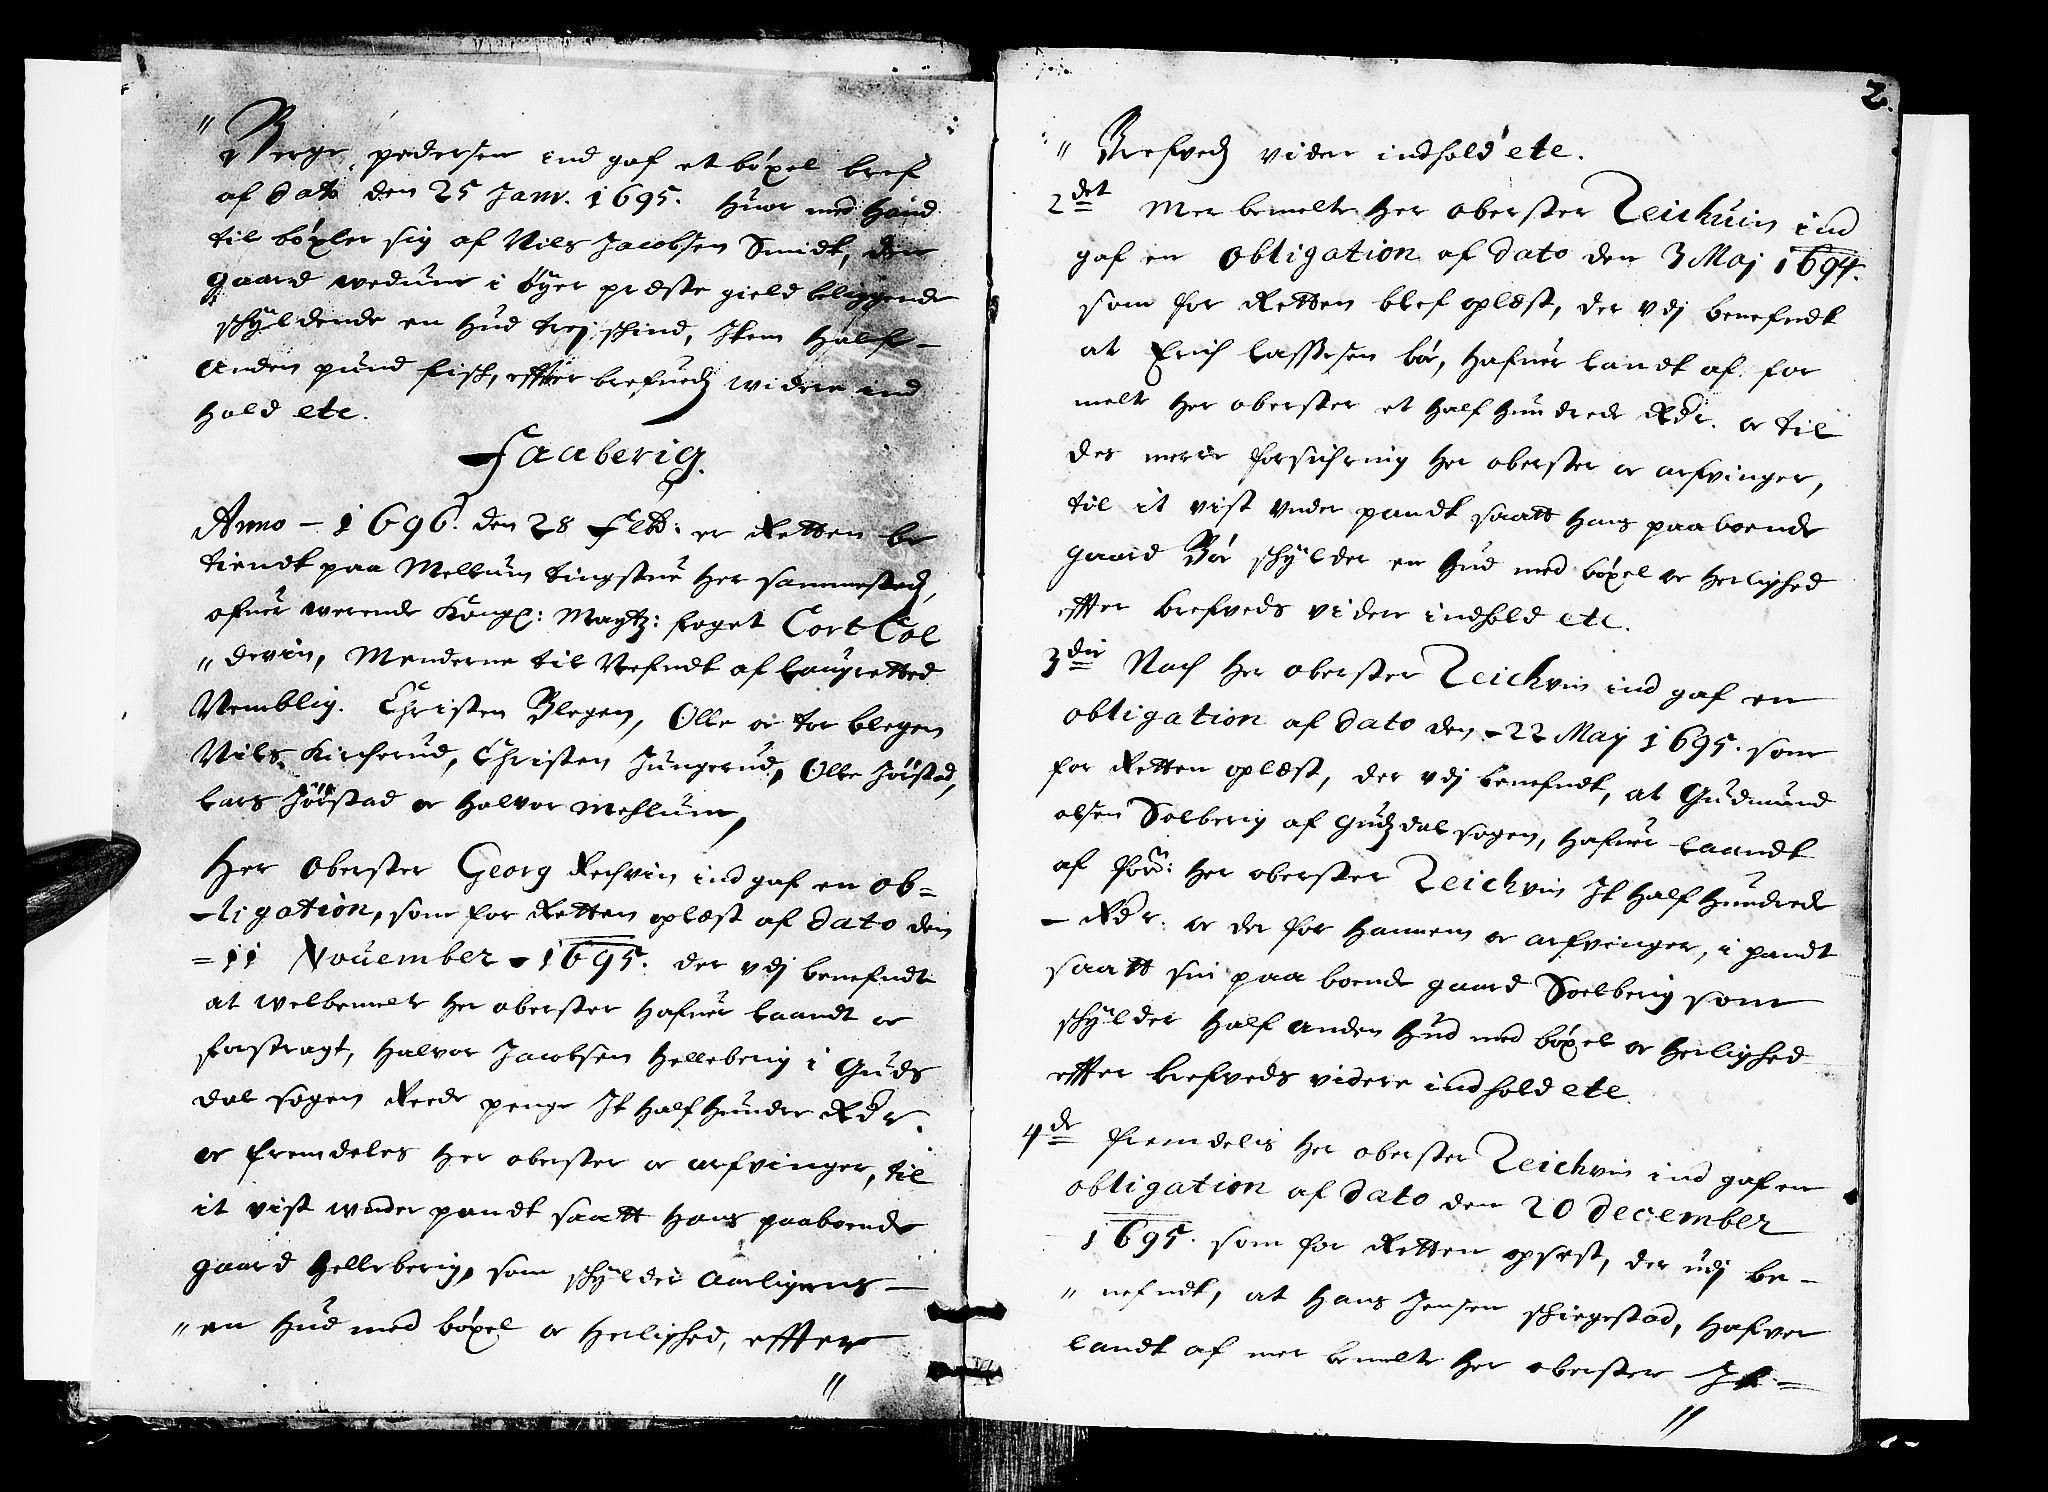 " Børge pedersen ind gaf et bøxel bref
af dato den 25 Janr. 1695. huor med hand
til bøxler sig af Nils Jacobsen Smidt, den
gaard wedum i øyer præste gield beliggende
schÿldende en hud trej schind, Item half-
anden pund fisk, effter brefuedz widere ind
hold etc.
Faaberig.
Anno - 1696. den 28 Feb: er Retten be
tiendt paa Mellum tingstue her sammestedz,
ofuer werende Kongl: Maytz: foget Cort Col
" devin, Menderne til Nefndt af laugretted
Nemblig. Christen Blegen, Olle oc tor blegen
Nils Kircherud, Christen Jungerud, Olle Jørstad,
Lars Jørstad oc Halvor Mehlum,
Her Oberster Georg Rechvin ind gaf en ob=
-ligation, som for Retten oplæst af dato den
= 11 Nouember - 1695. der vdj benefndt
at welbemelte her oberster hafuer laandt oc
forstragt, Halvor Jacobsen Helleberig i Guds
dal sogen Reede penge It half hundre Rdr.
oc fremdeles her oberster oc arfvinger, til
it vist wnder pandt saatt hans paaboende
gaard Helleberig, som schylder aarligens -
" en hud med bøxel oc herlighed, effter
"
2.
" Brefvedz vider indhold etc.
2det Mer bemelte her oberster Zeichuin ind
gaf en obligation af dato den 3 Maj 1694.
som for Retten blef oplæst, der vdj benefndt
at Erich lassesen bør, hafuer landt af for
melte her oberster et half hundrede Rdr. oc til
des merre forsichring her oberster oc arfvinger,
til it vist vnder pandt saatt hans paaboende
gaard Bør schÿlder en hud med bøxel oc herlighed
effter brefveds videre indhold etc.
3die Noch her oberster Zeichvin ind gaf en
obligation af dato den - 22 May 1695. som
for Retten oplæst, der vdj benefndt, at Gudmund
olsen Solberig af Gudzdal sogen, hafuer laandt
af forn: her oberster Zeichvin It half hundrede
- Rdr. oc der for hannem oc arfvinger, i pandt
saatt sin paa boende gaard Soelberig som
schÿlder half anden hud med bøxel oc herlighed
effter brefveds videre indhold etc.
4de fremdelis her oberster Zeichvin ind gaf en
obligation af dato den 20 december
1695. som for Retten oplæst, der udj be-
" nefndt, at Hans Jensen schiegestad, hafver
landt af mer bemelte her oberster It =
"